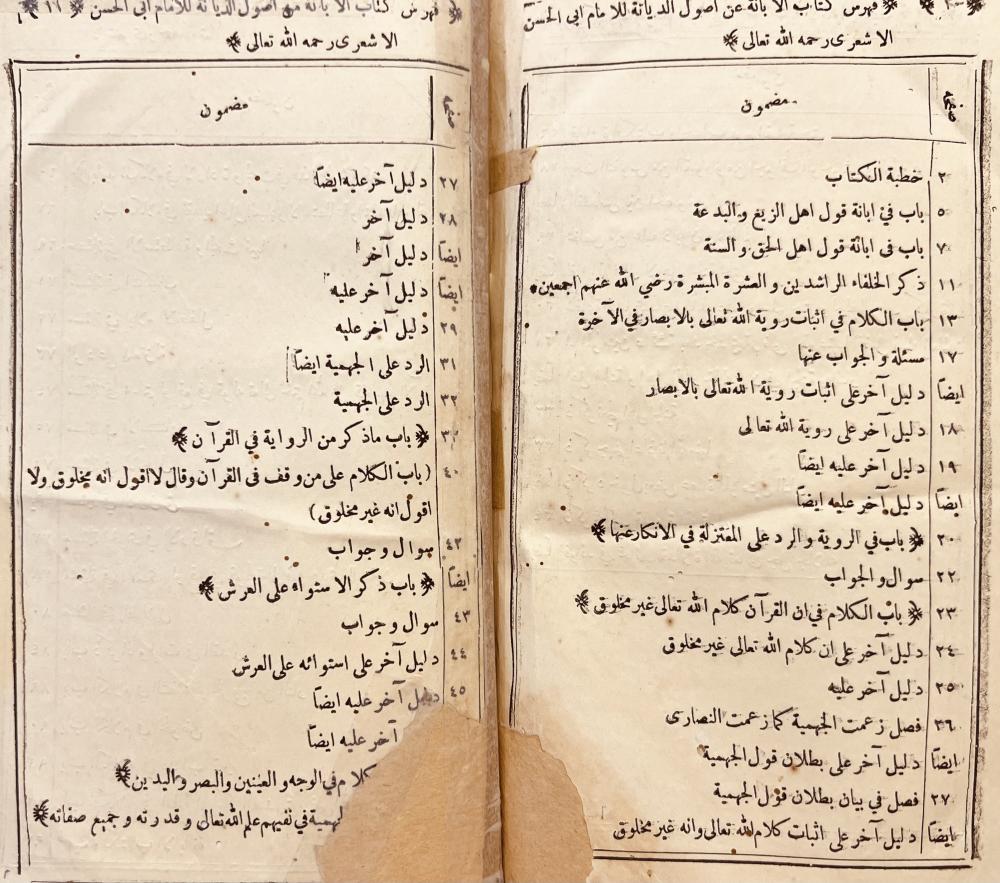 فهرس كتاب الابانة عن اصول الديانة للامام ابى الحسن
الاشعرى رحمه الله تعالى
صفحه مضمون
٢ خطبة الكتاب
٥ باب في ابانة قول اهل الزيغ والبدعة
٧ باب فى ابانة قول اهل الحق والسنة
١١ ذكر الخلفاء الراشدين والعشرة المبشرة رضي الله عنهم اجمعين
١٣ باب الكلام في اثبات روية الله تعالى بالابصار في الآخرة
١٧ مسئلة والجواب عنها
ايضاً دليل آخر على اثبات روية الله تعالى بالابصار
١٨ دليل آخر على روية الله تعالى
١٩ دليل آخر عليه ايضاً
ايضاً دليل آخر عليه ايضاً
٢٠ ﴿ باب في الروية والرد على المعتزلة في الانكار عنها ﴾
٢٢ سوال والجواب
٢٣ ﴿ باب الكلام في ان القرآن كلام الله تعالى غير مخلوق ﴾
٢٤ دليل آخر على ان كلام الله تعالى غير مخلوق
٢٥ دليل آخر عليه
٢٦ فصل زعمت الجهمية كما زعمت النصارى
ايضاً دليل آخر على بطلان قول الجهمية
٢٧ فصل في بيان بطلان قول الجهمية
ايضاً دليل آخر على اثبات كلام الله تعالى وانه غير مخلوق
فهرس كتاب الابانة عن اصول الديانة للامام ابى الحسن
الاشعرى رحمه الله تعالى ﴾
صفحه مضمون
٢٧ دليل آخر عليه ايضاً
٢٨ دليل آخر
ايضاً دليل آخر
ايضاً دليل آخر عليه
٢٩ دليل آخر عليه
٣١ الرد على الجهمية ايضاً
٣٢ الرد على الجهمية
﴿ باب ماذكر من الرواية في القرآن ﴾
٤٠ (باب الكلام على من وقف فى القرآن وقال لا اقول انه مخلوق ولا
اقول انه غير مخلوق)
٤٢ سوال وجواب
ايضاً ﴿ باب ذكر الاستواء على العرش ﴾
٤٣ سوال وجواب
٤٤ دليل آخر على استوائه على العرش
٤٥ دليل آخر عليه ايضاً
آخر عليه ايضاً
كلام في الوجه والعينين والبصر واليدين ﴾
لجهمية في نفيهم علم الله تعالى وقدرته وجميع صفاته ﴾